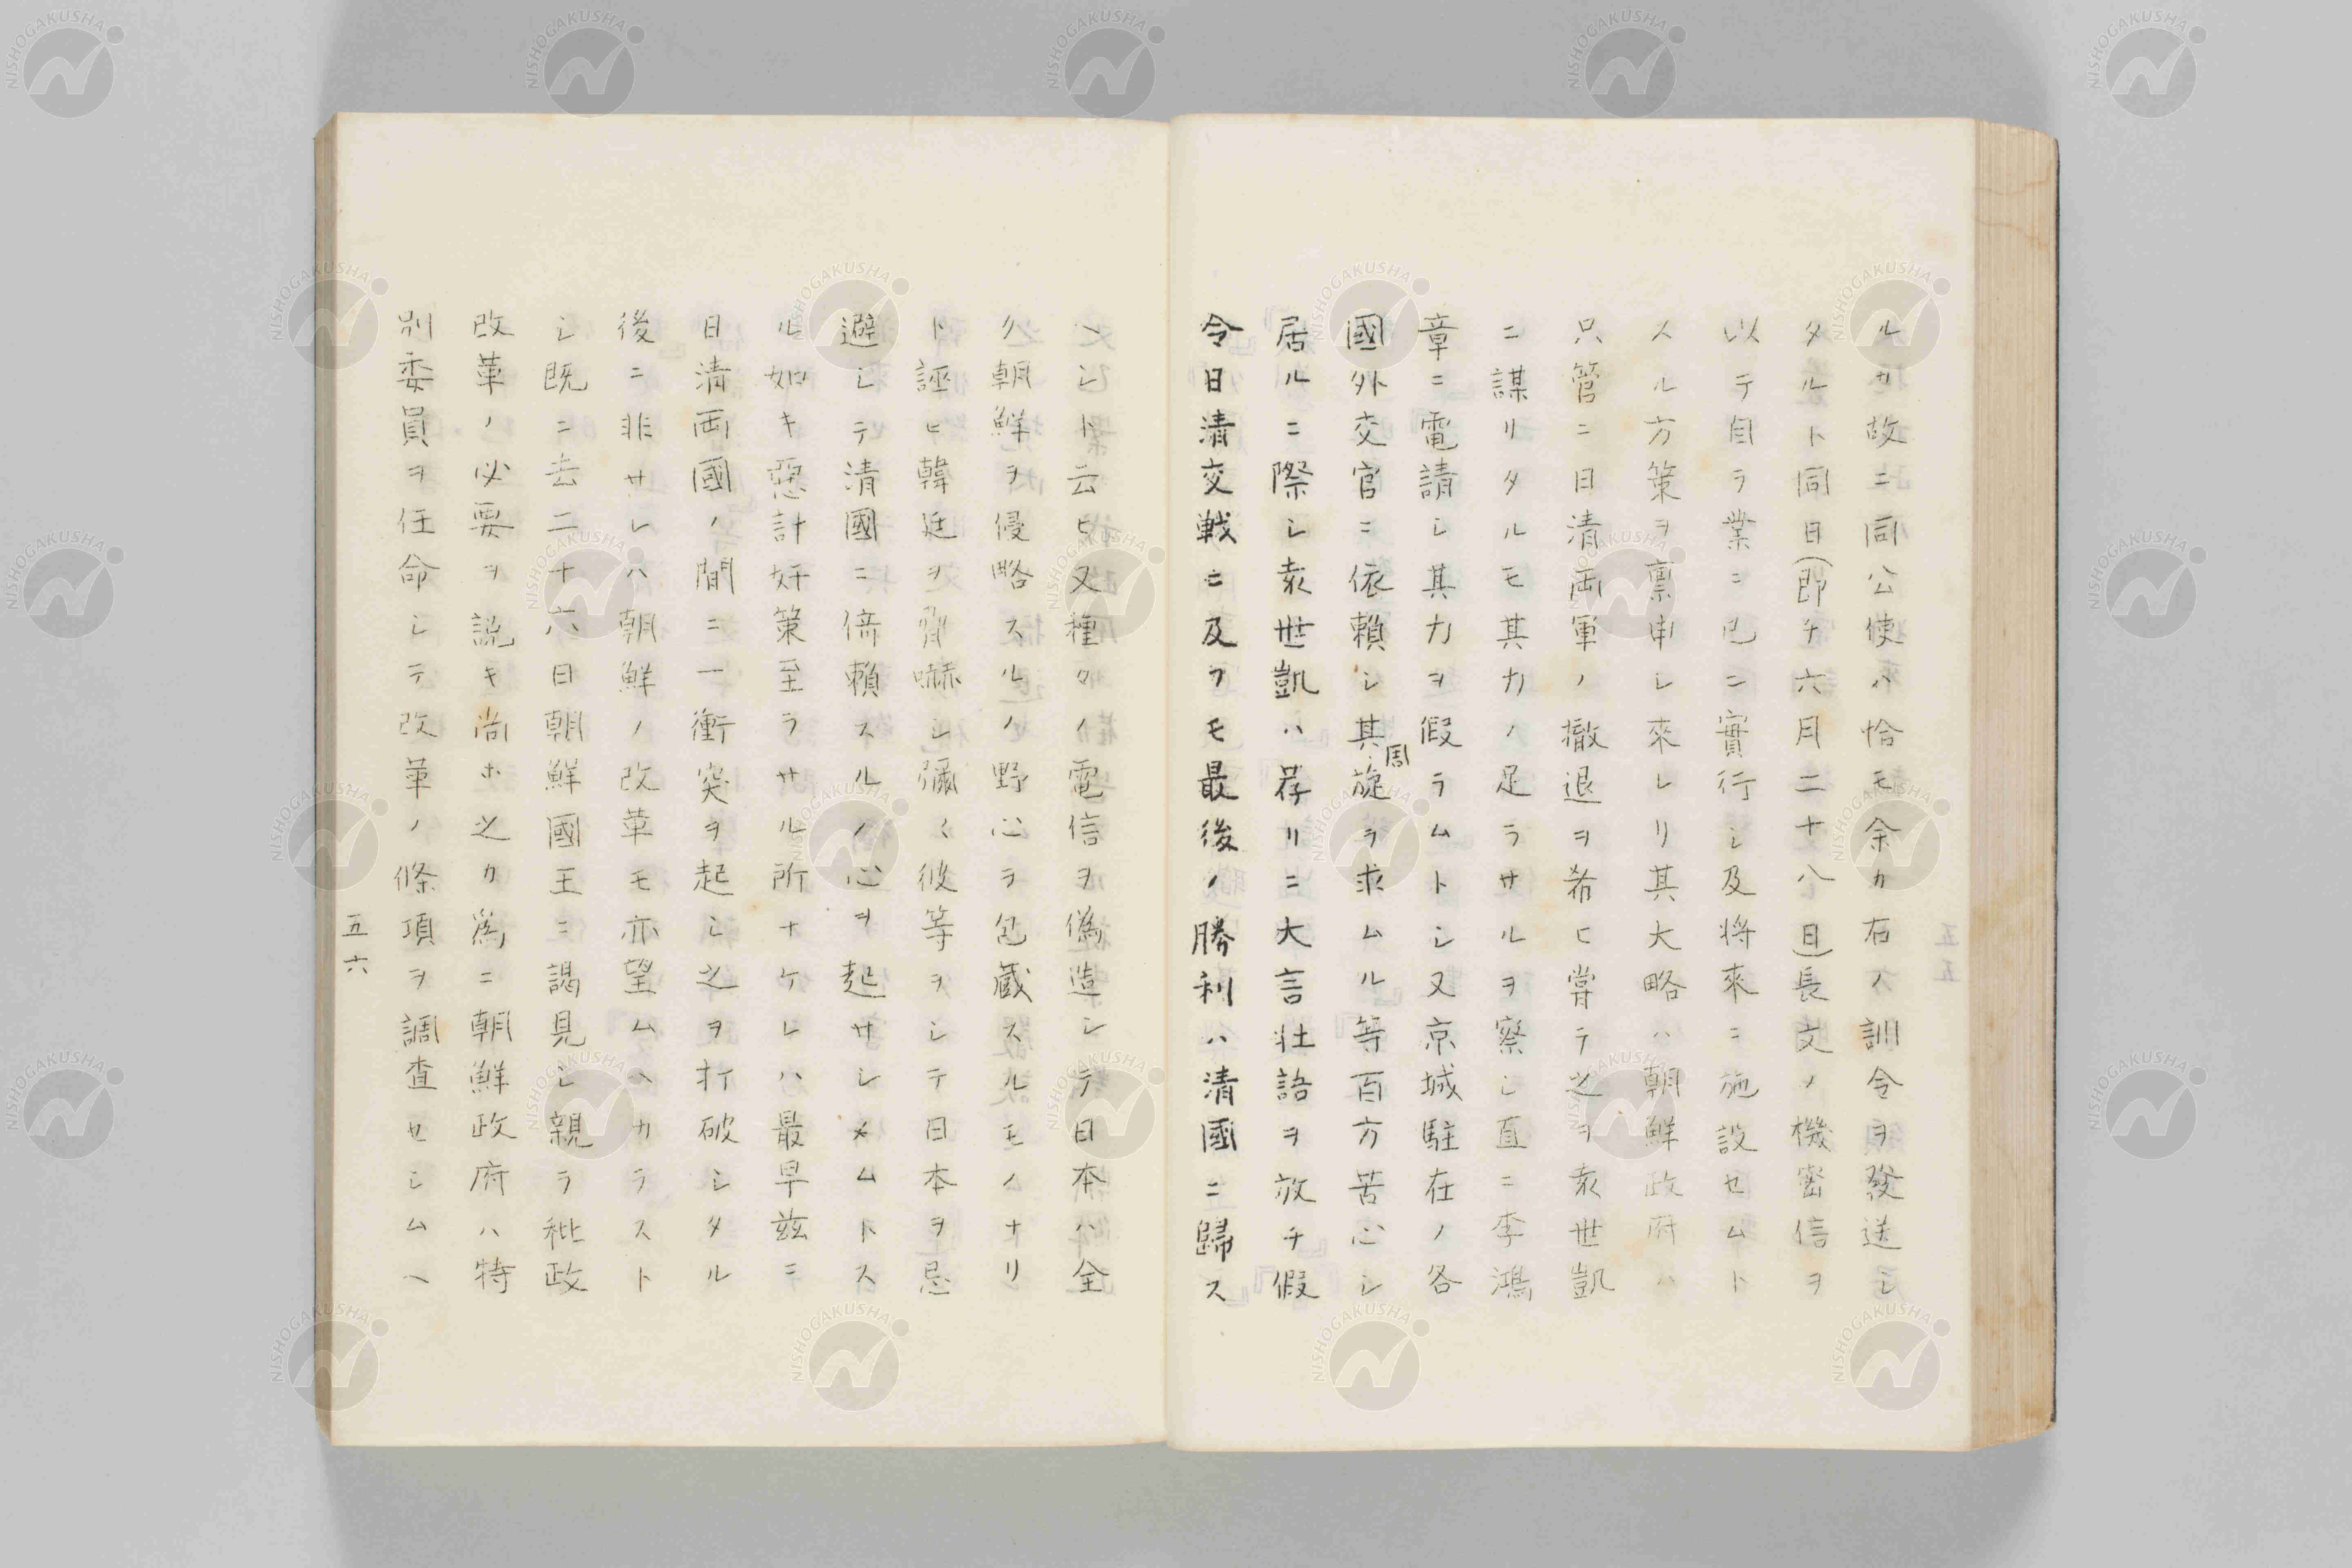 ルカ故ニ同公使ハ恰モ余カ右ノ訓令ヲ發送シ
タルト同日(即チ六月二十八日)長文ノ機密信ヲ
以テ自ラ業ニ已ニ實行シ及將來ニ施設セムト
スル方策ヲ禀申シ來レリ其大略ハ朝鮮政府ハ
只管ニ日清両軍ノ撤退ヲ希ヒ嘗テ之ヲ袁世凱
ニ謀リタルモ其力ノ足ラサルヲ察シ直ニ李鴻
章ニ電請シ其力ヲ假ラムトシ又京城駐在ノ各
國外交官ニ依賴シ其周旋ヲ求ムル等百方苦心シ
居ルニ際シ袁世凱ハ荐リニ大言壮語ヲ放チ假
令日清交戦ニ及フモ最後ノ勝利ハ清國ニ歸ス
ヘシト云ヒ又種々ノ電信ヲ偽造シテ日本ハ全
ク朝鮮ヲ侵略スルノ野心ヲ包蔵スルモノナリ
ト誣ヒ韓廷ヲ脅嚇シ彌々彼等ヲシテ日本ヲ忌
避シテ清國ニ倚賴スルノ心ヲ起サシメムトス
ル如キ惡計奸策至ラサル所ナケレハ最早玆ニ
日清両國ノ間ニ一衝突ヲ起シ之ヲ打破シタル
後ニ非サレハ朝鮮ノ改革モ亦望ムヘカラスト
シ既ニ去二十六日朝鮮國王ニ謁見シ親ラ秕政
改革ノ必要ヲ説キ尚ホ之カ爲ニ朝鮮政府ハ特
別委員ヲ任命シテ改革ノ條項ヲ調査セシムヘ
五六
NISHOGAKUSHA